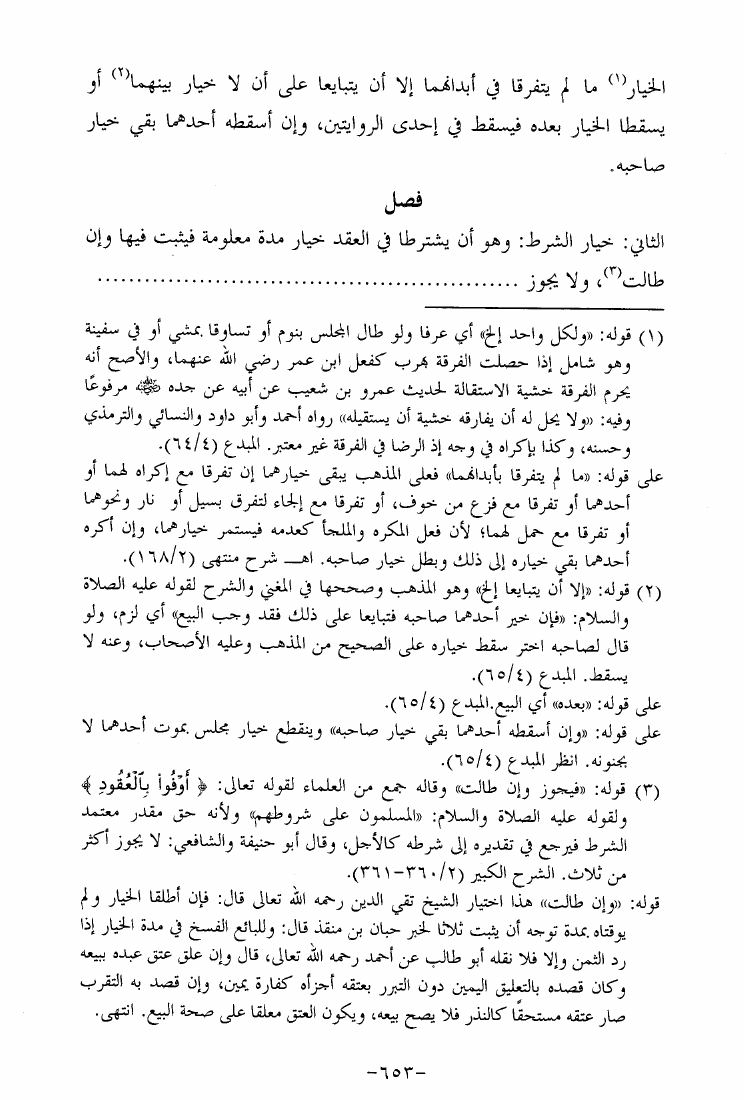 الخيار(١) ما لم يتفرقا في أبدانهما إلا أن يتبايعا على أن لا خيار بينهما(٢) أو
يسقطا الخيار بعده فيسقط في إحدى الروايتين، وإن أسقطه أحدهما بقي خيار
صاحبه.
فصل
الثاني: خيار الشرط: وهو أن يشترطا في العقد خيار مدة معلومة فيثبت فيها وإن
طالت(٣)، ولا يجوز ......................................................
(١) قوله: «ولكل واحد إلخ» أي عرفا ولو طال المجلس بنوم أو تساوقا بمشي أو في سفينة
وهو شامل إذا حصلت الفرقة بهرب كفعل ابن عمر رضي الله عنهما، والأصح أنه
يحرم الفرقة خشية الاستقالة لحديث عمرو بن شعيب عن أبيه عن جده ﷺ مرفوعًا
وفيه: «ولا يحل له أن يفارقه خشية أن يستقيله» رواه أحمد وأبو داود والنسائي والترمذي
وحسنه، وكذا بإكراه في وجه إذ الرضا في الفرقة غير معتبر. المبدع (٦٤/٤).
على قوله: «ما لم يتفرقا بأبدانهما» فعلى المذهب يبقى خيارهما إن تفرقا مع إكراه لهما أو
أحدهما أو تفرقا مع فزع من خوف، أو تفرقا مع إلجاء لتفرق بسيل أو نار ونحوهما
أو تفرقا مع حمل لهما؛ لأن فعل المكره والملجأ كعدمه فيستمر خيارهما، وإن أكره
أحدهما بقي خياره إلى ذلك وبطل خيار صاحبه. اهـــ شرح منتهى (١٦٨/٢).
(٢) قوله: «إلا أن يتبايعا إلخ» وهو المذهب وصححها في المغني والشرح لقوله عليه الصلاة
والسلام: «فإن خير أحدهما صاحبه فتبايعا على ذلك فقد وجب البيع» أي لزم، ولو
قال لصاحبه اختر سقط خياره على الصحيح من المذهب وعليه الأصحاب، وعنه لا
يسقط. المبدع (٦٥/٤).
على قوله: «بعده» أي البيع.المبدع (٦٥/٤).
على قوله: «وإن أسقطه أحدهما بقي خيار صاحبه» وينقطع خيار مجلس بموت أحدهما لا
بجنونه. انظر المبدع (٦٥/٤).
(٣) قوله: «فيجوز وإن طالت» وقاله جمع من العلماء لقوله تعالى: ﴿ أَوْفُوا بِالْعُقُودِ ﴾
ولقوله عليه الصلاة والسلام: «المسلمون على شروطهم» ولأنه حق مقدر معتمد
الشرط فيرجع في تقديره إلى شرطه كالأجل، وقال أبو حنيفة والشافعي: لا يجوز أكثر
من ثلاث. الشرح الكبير (٣٦٠/٢-٣٦١).
قوله: «وإن طالت» هذا اختيار الشيخ تقي الدين رحمه الله تعالى قال: فإن أطلقا الخيار ولم
يوقتاه بمدة توجه أن يثبت ثلاثا لخبر حبان بن منقذ قال: وللبائع الفسخ في مدة الخيار إذا
رد الثمن وإلا فلا نقله أبو طالب عن أحمد رحمه الله تعالى، قال وإن علق عتق عبده ببيعه
وكان قصده بالتعليق اليمين دون التبرر بعتقه أجزأه كفارة يمين، وإن قصد به التقرب
صار عتقه مستحقًا كالنذر فلا يصح بيعه، ويكون العتق معلقا على صحة البيع. انتهى.
-٦٥٣-